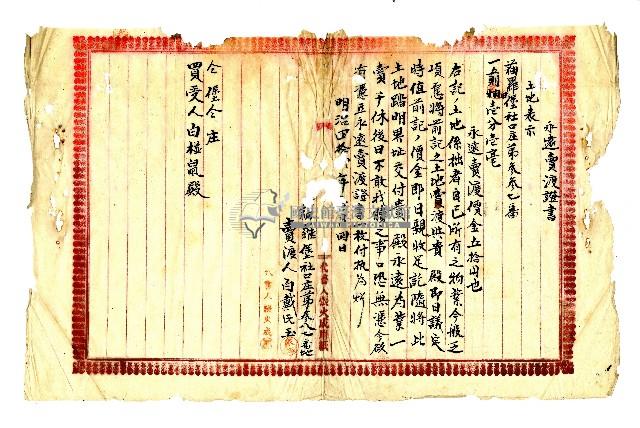 永遠賣渡證書
土地之表示
羅堡社口庄第参参乙番
一 壹分壹毫
永遠賣渡價金五拾円也
右記之土地係拙者自己所有之物業今般乏
項應將前記之土地賣渡與貴殿即日議定
時值前記之價金即日親收足訖隨將此
土地踏明界址交付貴殿永遠為業一
賣千休後日不敢 之事口恐無憑今欲
有憑立永遠賣渡證 枚付執為炤
明治四拾 年 四日
羅堡社口庄第参八七番地
賣渡人白戴氏玉
仝堡仝庄
買受人白 殿